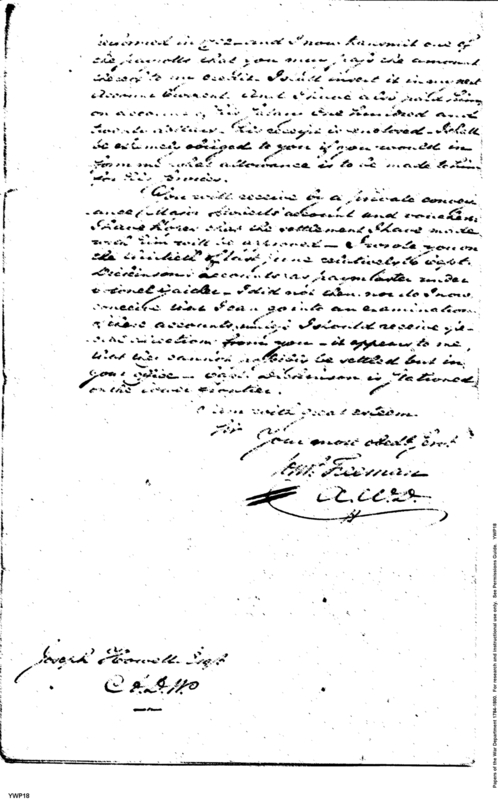 and I now transmit one of
the payrolls that you may pass the amount
to my credit. I shall insert it in my next
Account Current. And I have also paid him
on account of his One hundred and
dollars. His receipt is enclosed. I shall
be extremely obliged to you if you would in
form me what allowance is to be made to him
for his services.
You will receive by a private convey
ance Major account and vouchers
I have hopes that the settlement I have made
with him will be approved. I wrote you on
the of last June relatively to Capt.
Dickinsons accounts as paymaster under
Colonel Gaither. I did not then nor do I now
conceive that I can go into an examination
of these accounts, unless I should receive
directions from you. it appears to me,
that they cannot be settled but in
your office. Capt. Dickinson is stationed
on the lower frontier.
I am with great esteem
Sir
Your most Obedt. Servt.
Freeman
A.W.D.
Joseph Howell Esqr.
YWP18
Papers of the War Department 1784-1800. For research and instructional use only. See Permissions Guide. YWP18